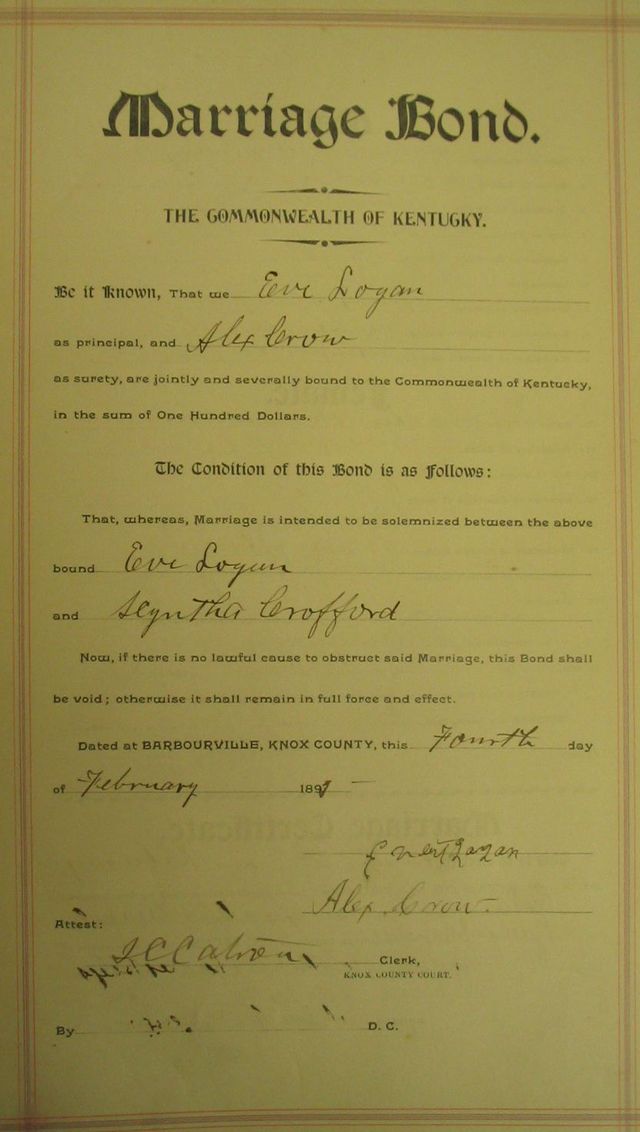 Marriage Bond.
THE COMMONWEALTH OF KENTUCKY.
Be it Known, That we Eve Logan
as principal, and Alex Crow
as surety, are jointly and severally bound to the Commonwealth of Kentucky,
in the sum of One Hundred Dollars.
The Condition of this Bond is as follows:
That, whereas, Marriage is intended to be solemnized between the above
bound Eve Logan
and Scyntha Crofford
Now, if there is no lawful cause to obstruct said Marriage, this Bond shall
be void; otherwise it shall remain in full force and effect.
Dated at BARBOURVILLE, KNOX COUNTY, this Fourth day
of February 1897
Logan
Alex Crow.
Attest:
Clerk,
KNOX COUNTY COURT.
By D. C.